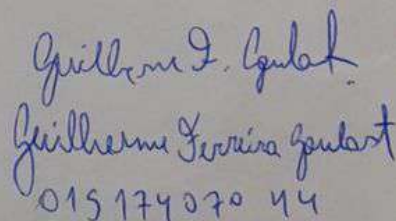 Guilherme F. Goulart
Guilherme Ferreira Goulart
015 174 070 44